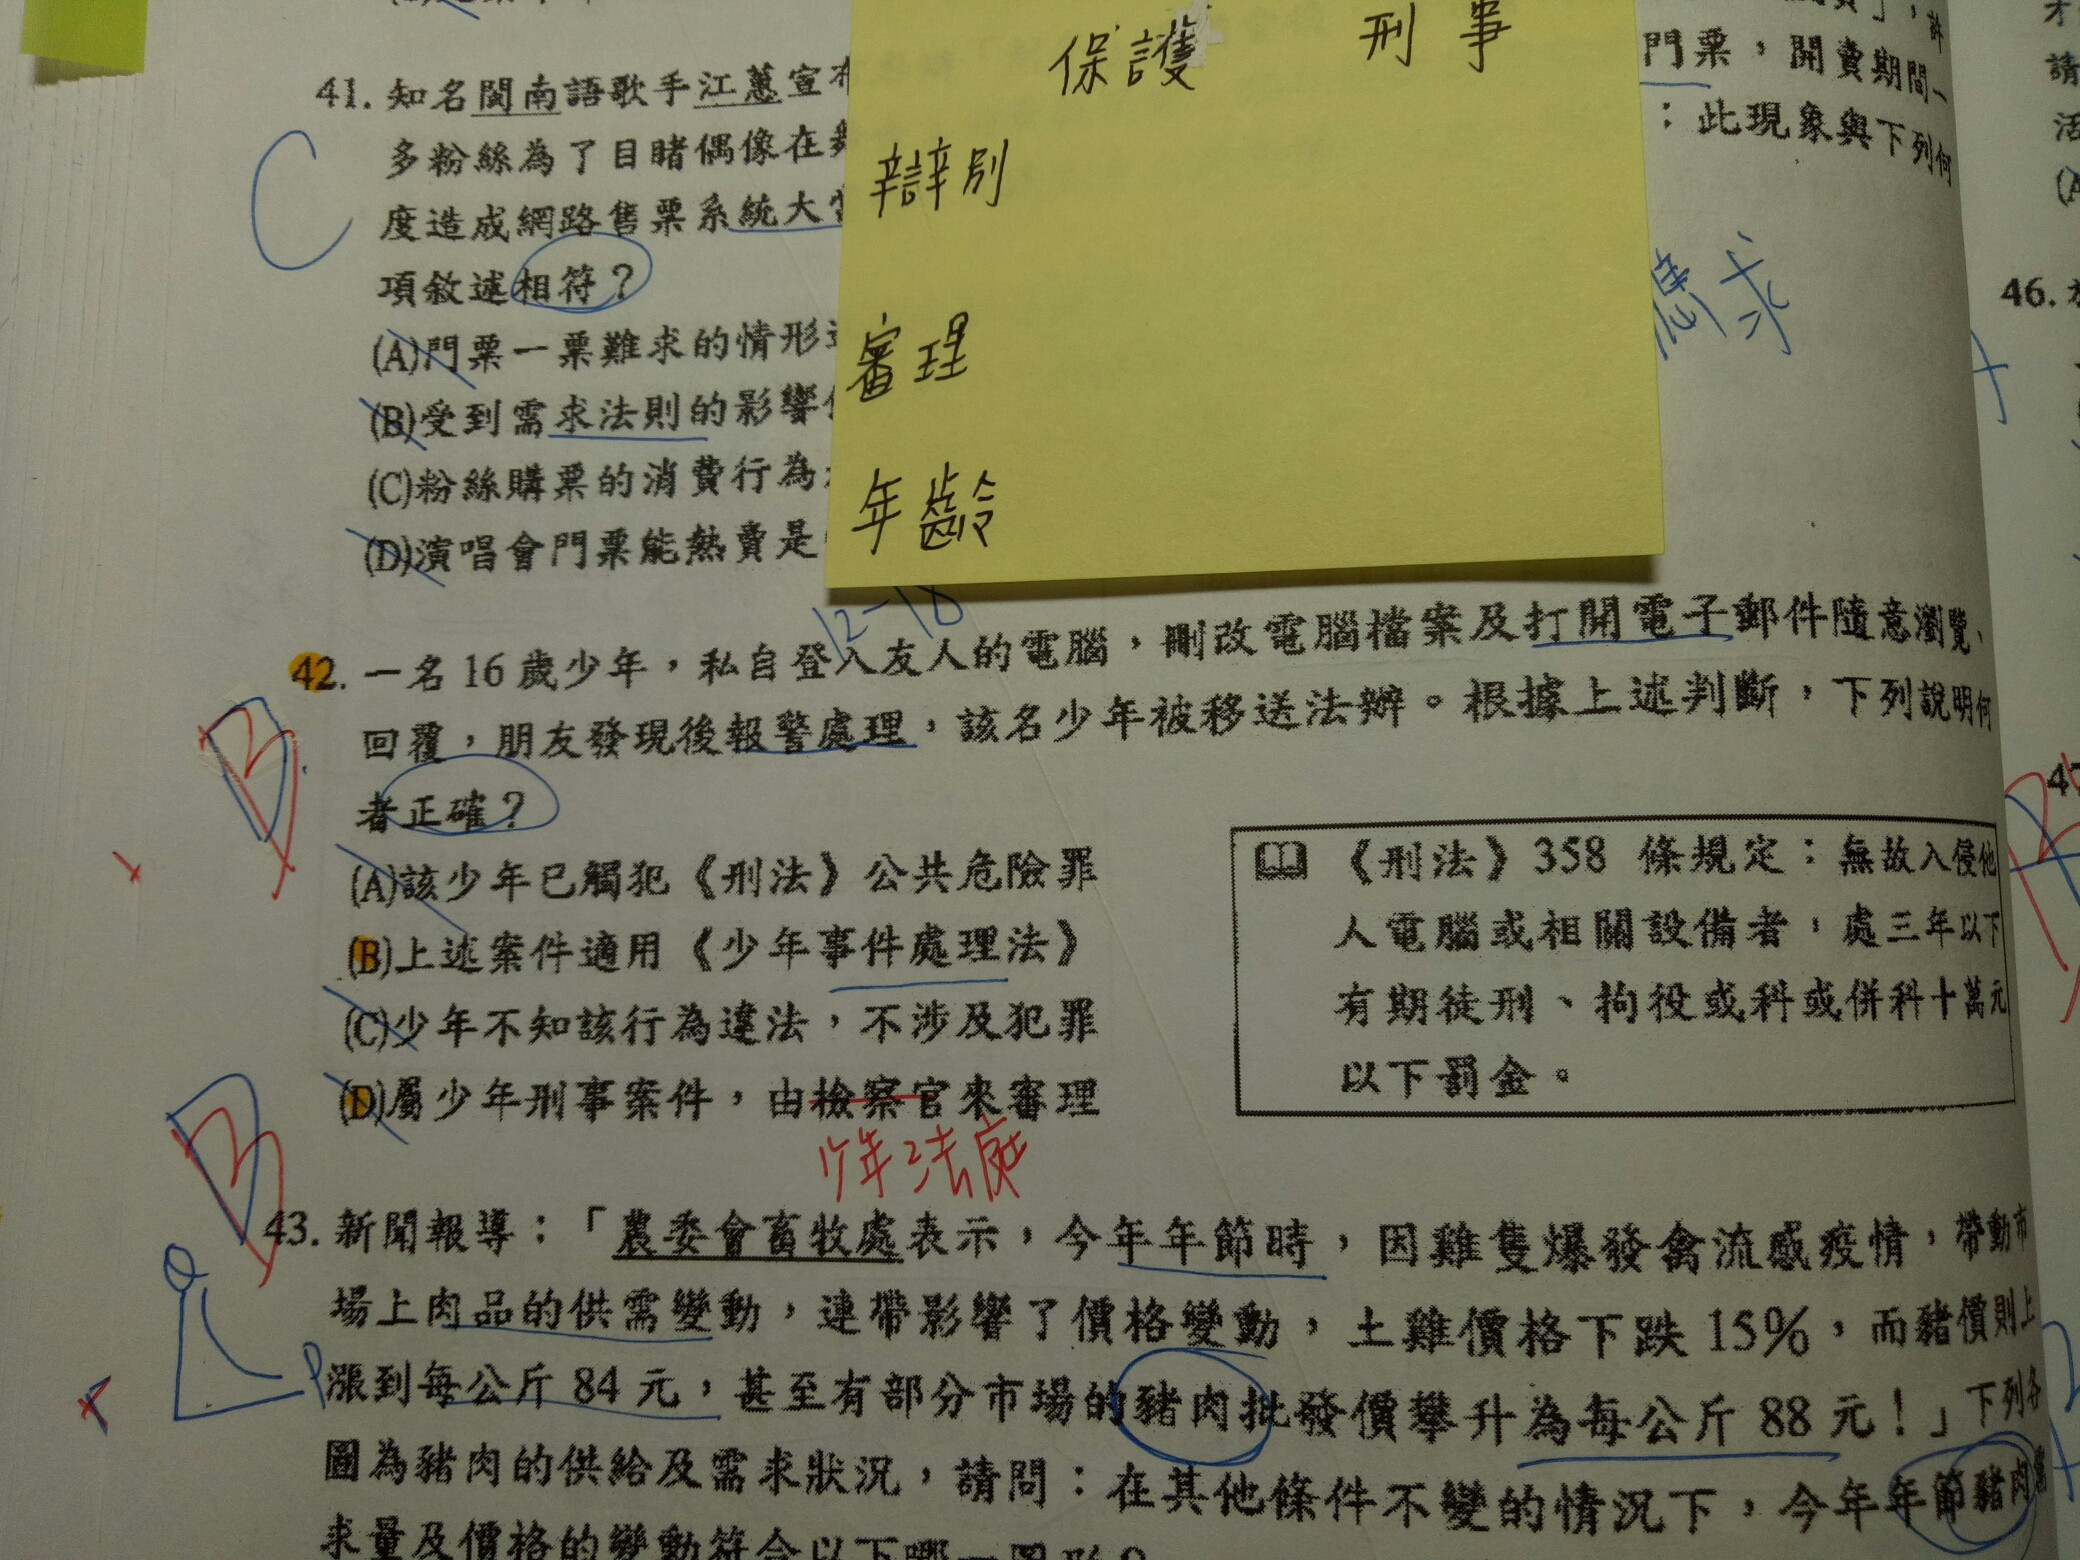 保護 刑事
辯別
審理
年齡
41. 知名閩南語歌手江蕙宣
多粉絲為了目睹偶像在
度造成網路售票系統大
項敘述相符？
(A)門票一票難求的情形
(B)受到需求法則的影響
(C)粉絲購票的消費行為
(D)演唱會門票能熱賣是
門票，開賣期間一
：此現象與下列何
C
12-18
42. 一名16歲少年，私自登入友人的電腦，刪改電腦檔案及打開電子郵件隨意瀏覽、
回覆，朋友發現後報警處理，該名少年被移送法辦。根據上述判斷，下列說明何
者正確？
B
(A)該少年已觸犯《刑法》公共危險罪
(B)上述案件適用《少年事件處理法》
(C)少年不知該行為違法，不涉及犯罪
(D)屬少年刑事案件，由檢察官來審理
少年法庭
《刑法》358 條規定：無故入侵他
人電腦或相關設備者，處三年以下
有期徒刑、拘役或科或併科十萬元
以下罰金。
B
43. 新聞報導：「農委會畜牧處表示，今年年節時，因雞隻爆發禽流感疫情，帶動市
場上肉品的供需變動，連帶影響了價格變動，土雞價格下跌15%，而豬價則上
漲到每公斤 84 元，甚至有部分市場的豬肉批發價攀升為每公斤 88 元！」下列各
圖為豬肉的供給及需求狀況，請問：在其他條件不變的情況下，今年年節豬肉需
求量及價格的變動符合以下哪一圖形？
Q
P
46.
47